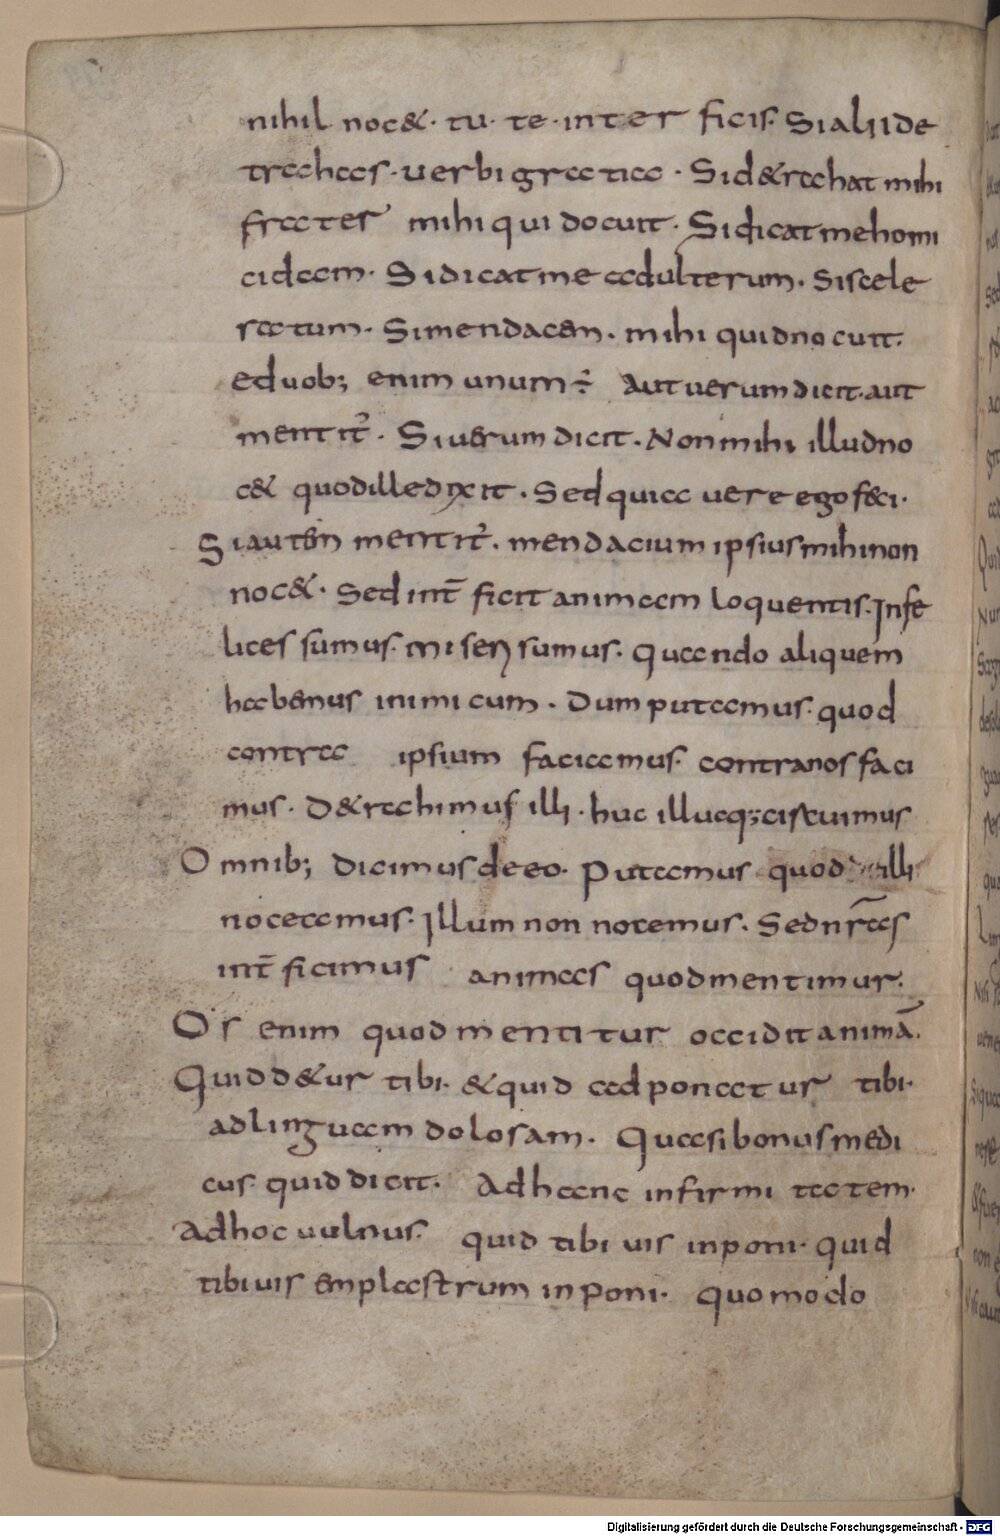 nihil noc&. tu. te. inter ficis. Si alii de
trahas. verbi gratia. Si d&rachat mihi
frater mihi qui docuit. Si dicat me homi
cidam. Si dicat me adulterum. Si scele
ratum. Si mendacem. mihi quid nocuit.
e duob; enim unum ÷ Aut verum dicit. aut
mentit̉. Si verum dicit. Non mihi illud no
c& quod ille dixit. Sed quia vere ego feci.
Si autem mentit̉. mendacium ipsius mihi non
noc&. Sed int̄ ficit animam loquentis. Infe
lices sumus. miseri sumus. Quando aliquem
habemus inimicum. Dum putamus. quod
contra ipsium faciamus. contra nos faci
mus. D&rachimus illi. huc illucq; cistuimus
Omnib; dicimus de eo. Putamus quod illi
noceamus. Illum non nocemus. Sed nr̄as
int̄ ficimus animas quod mentimur.
Os enim quod mentitur occidit animā.
Quid d&ur tibi. & quid ad ponatur tibi.
ad linguam dolosam. Quasi bonus medi
cus quid dicit. Ad hanc infirmitatem.
Ad hoc vulnus. quid tibi vis inponi. quid
tibi vis emplastrum inponi. quomodo
Digitalisierung gefördert durch die Deutsche Forschungsgemeinschaft - DFG